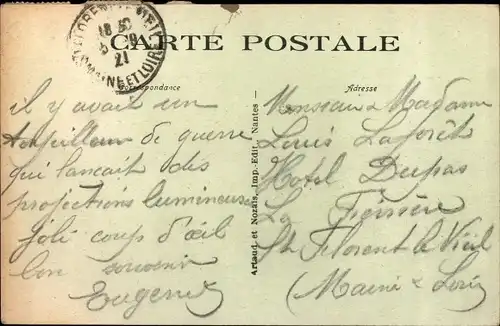 CARTE POSTALE
Correspondance
Adresse
il y avait un
torpilleur de guerre
qui lancait des
projections lumineuses
Joli coup d'œil
bon souvenir
Eugene
Artaud et Nozais, Imp.-Edit., Nantes
Monsieur & Madame
Louis Laforêts
Hotel Dupas
La
St Florent le Vieil
(Maine & Loire)
18 30
21
MAINE ET LOIRE